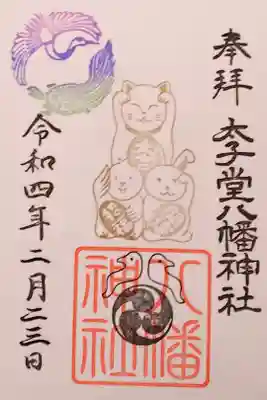 奉拝 太子堂八幡神社
八幡
神社
令和四年二月二三日